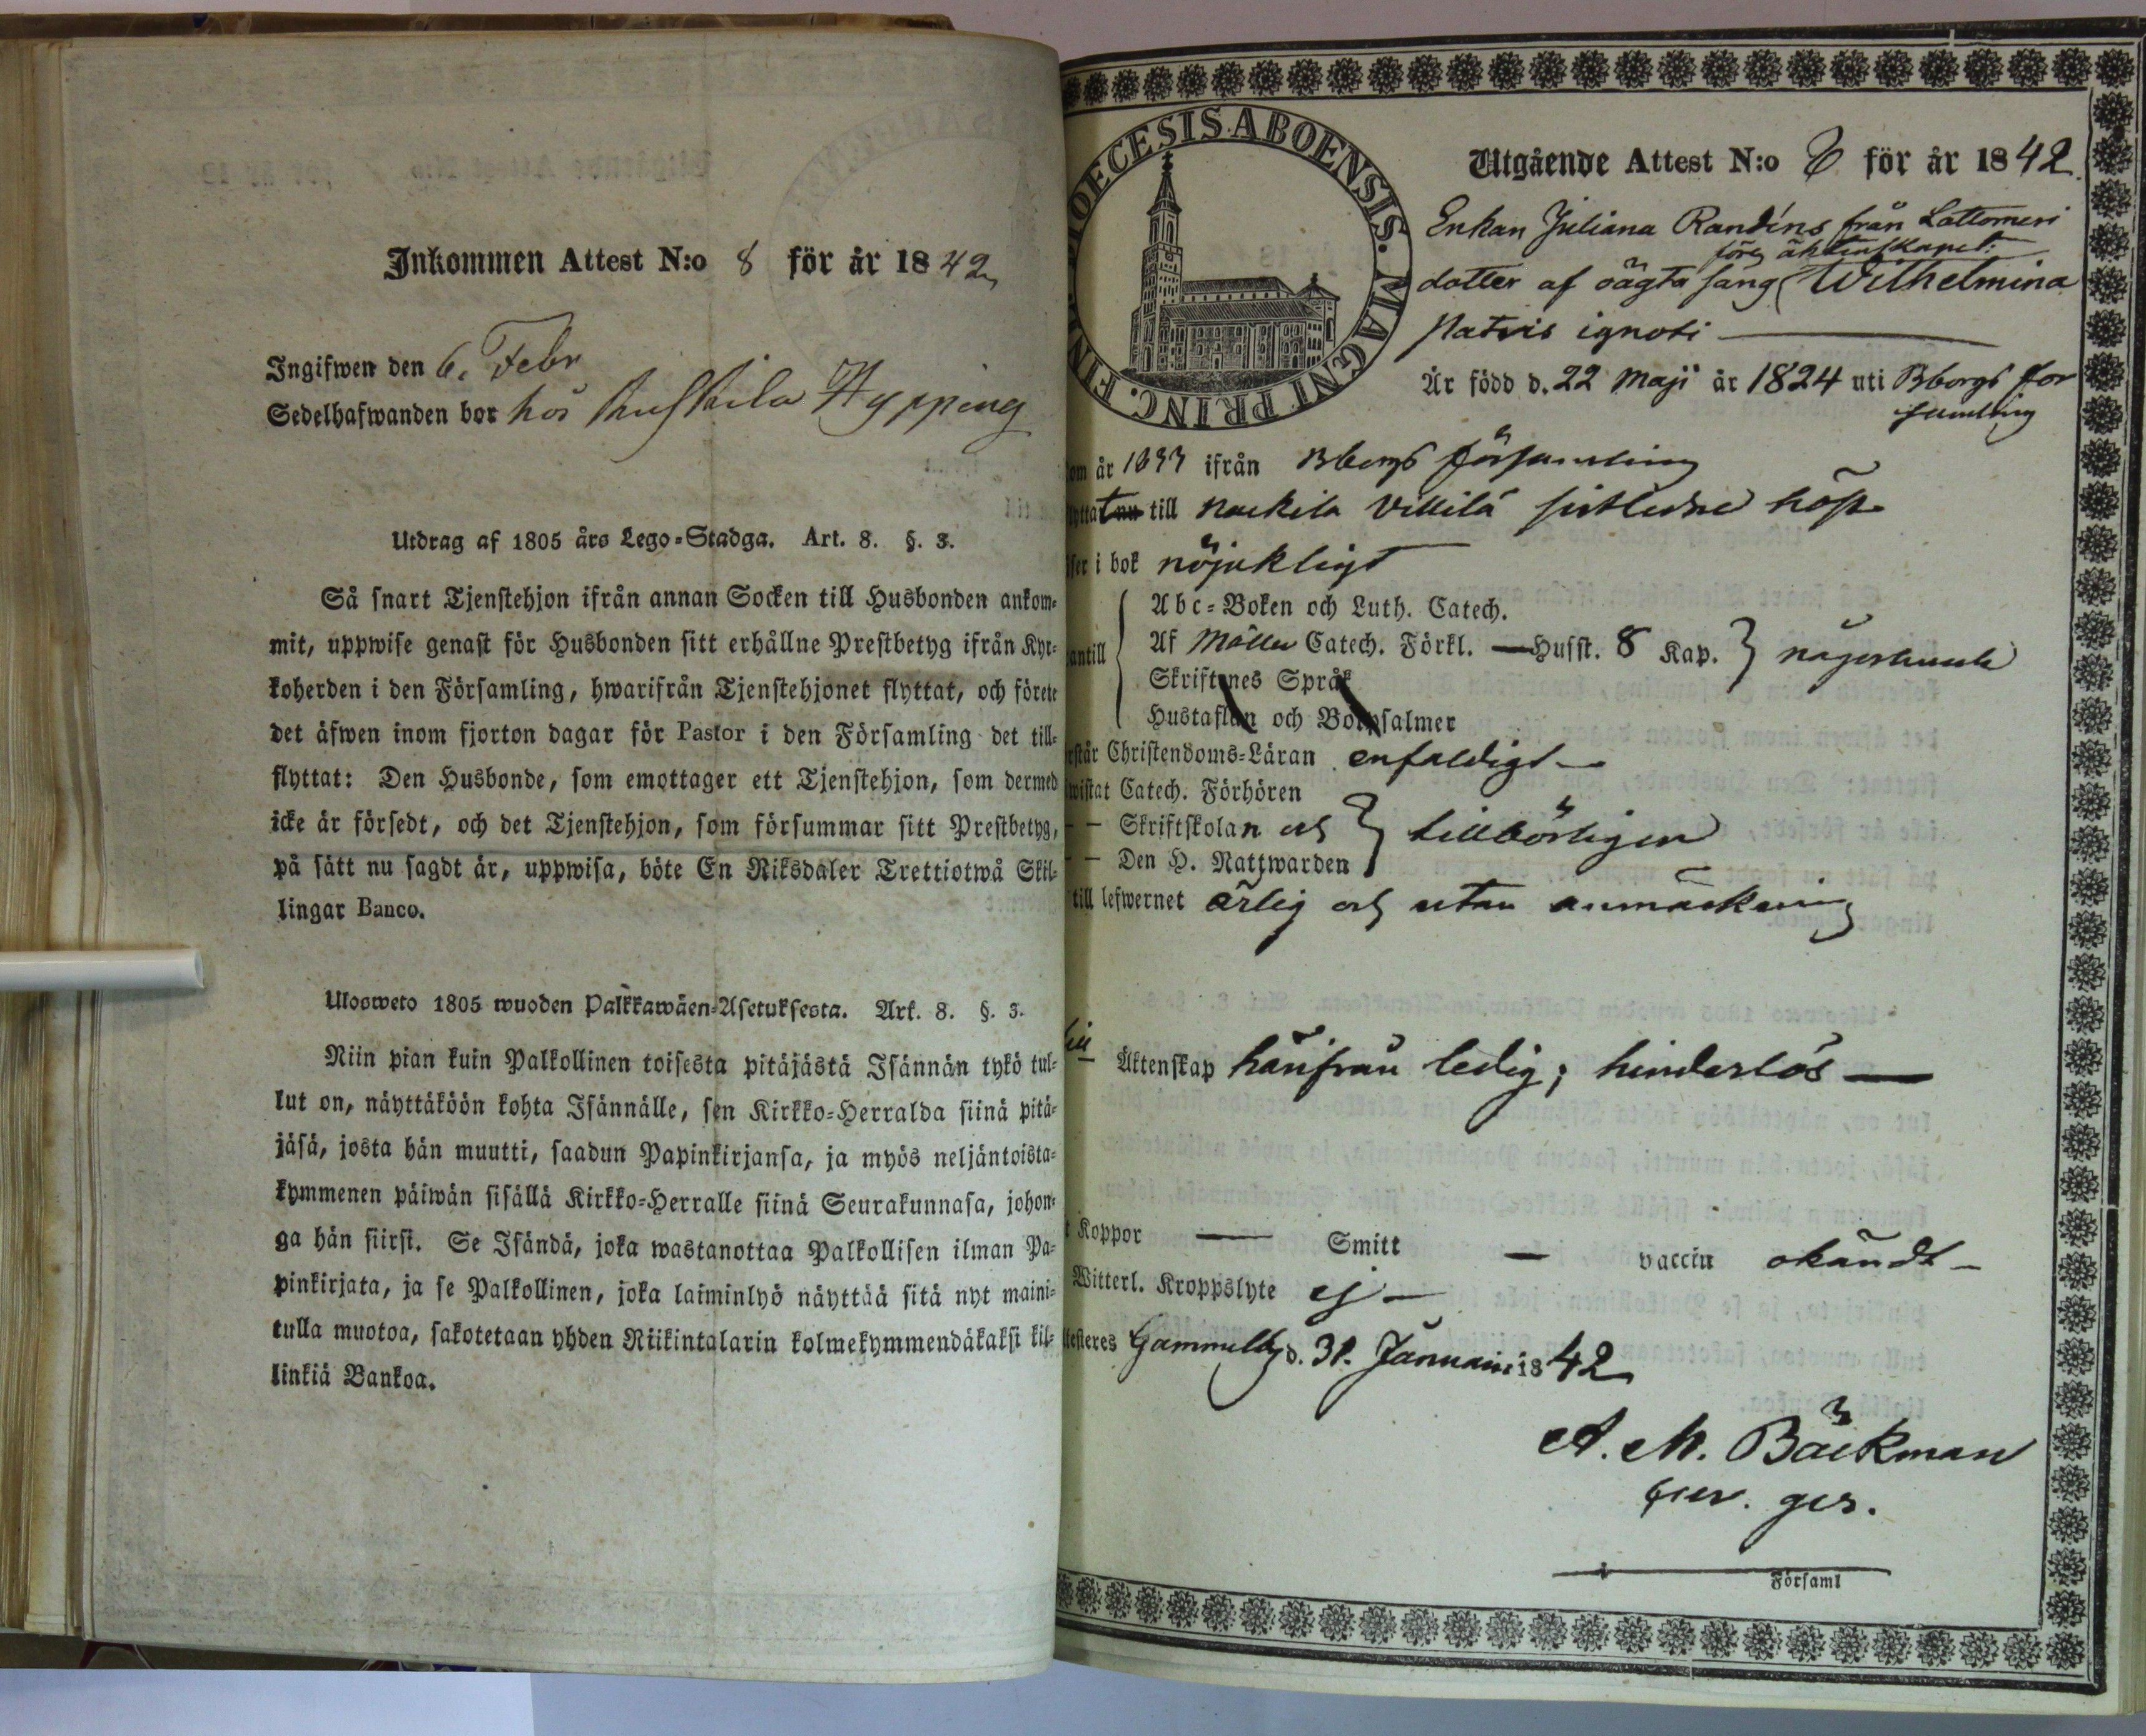 Inkommen Attest N:o 8 för år 1842
Ingifwen den 6. Febr
Sedelhafwanden bor hos Ruskila Hypping
Utdrag af 1805 års Lego-Stadga. Art. 8. §. 3.
Så snart Tjenstehjon ifrån annan Socken till Husbonden ankom-
mit, uppwise genast för Husbonden sitt erhållne Prestbetyg ifrån Kyr-
koherden i den Församling, hwarifrån Tjenstehjonet flyttat, och förete
det äfwen inom fjorton dagar för Pastor i den Församling det till-
flyttat: Den Husbonde, som emottager ett Tjenstehjon, som dermed
icke är försedt, och det Tjenstehjon, som försummar sitt Prestbetyg,
på sätt nu sagdt är, uppwisa, böte En Riksdaler Trettiotwå Skil-
lingar Banco.
Ulosweto 1805 wuoden Palkkawäen-Asetuksesta. Art. 8. §. 3.
Niin pian kuin Palkollinen toisesta pitäjästä Isännän tykö tul-
lut on, näyttäköön kohta Isännälle, sen Kirkko-Herralda siinä pitä-
jäsä, josta hän muutti, saadun Papinkirjansa, ja myös neljäntoista-
kymmenen päiwän sisällä Kirkko-Herralle siinä Seurakunnasa, johon-
ga hän siirst. Se Isändä, joka wastanottaa Palkollisen ilman Pa-
pinkirjata, ja se Palkollinen, joka laiminlyö näyttää sitä nyt maini-
tulla muotoa, sakotetaan yhden Riikintalarin kolmekymmendäkaksi kil-
linkiä Bankoa.
DIOECESIS ABOENSIS. MAGNI PRINC. FIN
Utgående Attest N:o 8 för år 1842.
Enkan Juliana Randéns från Lattomeri
före äktenskapet
dotter af oägta säng Wilhelmina
Patris ignoti
Är född d. 22 Maji år 1824 uti Bborgs för
samling
om år 1833 ifrån Bborgs församling
yttat nu till Nackila Villilä sistledne höst
ser i bok nöjaktligt
Abc-Boken och Luth. Catech.
antill Af Möller Catech. Förkl. — Husst. 8 Kap. } någorlunda
Skriftenes Språk
Hustaflan och Botpsalmer
rstår Christendoms-Läran enfaldigt
wistat Catech. Förhören
— Skriftskolan och } tillbörligen
— Den H. Nattwarden
till lefwernet ärlig och utan anmärkning
till Äktenskap härifrån ledig; hinderlös
t Koppor — Smitt — vaccin okändt
Witterl. Kroppslyte ej
ttesteres Gammelby d. 31. Januarii 1842
A. M. Bäckman
Församl